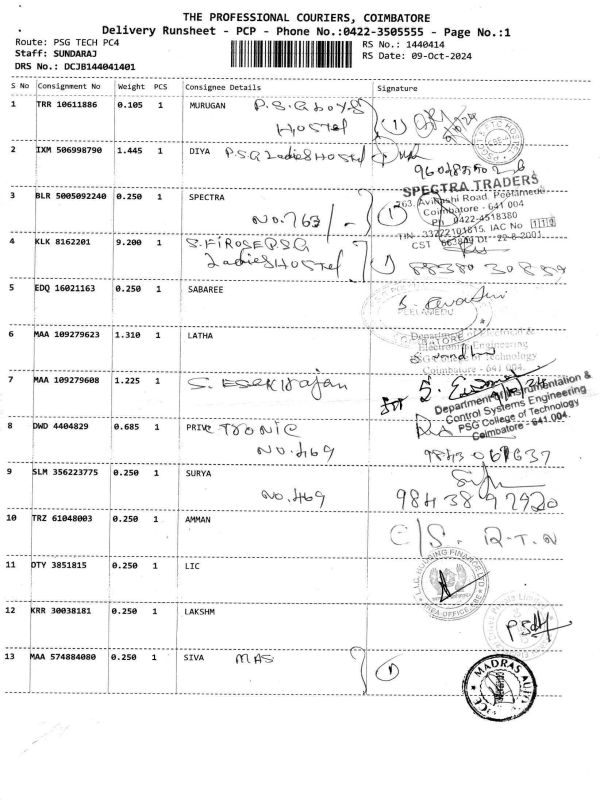 THE PROFESSIONAL COURIERS, COIMBATORE
Delivery Runsheet - PCP - Phone No.:0422-3505555 - Page No.:1
Route: PSG TECH PC4
Staff: SUNDARAJ
DRS No.: DCJB144041401
RS No.: 1440414
RS Date: 09-Oct-2024
S No Consignment No Weight PCS Consignee Details Signature
1 TRR 10611886 0.105 1 MURUGAN P.S.G boys Hostel 1
2 IXM 506998790 1.445 1 DIYA P.S.G Ladies Hostel
3 BLR 5005092240 0.250 1 SPECTRA NO.763/- 1
SPECTRA TRADERS
763, Avinashi Road, Peelamedu
Coimbatore - 641 004
Ph 0422-4518380
TIN 33722101815. IAC No 110
CST 663849 Dt 22-8-2001
4 KLK 8162201 9.200 1 S.FIROSE PSG Ladies Hostel 1 88380 30889
5 EDQ 16021163 0.250 1 SABAREE
PEELAMEDU
COIMBATORE
6 MAA 109279623 1.310 1 LATHA
Department of Electrical &
Electronic Engineering
PSG College of Technology
Coimbatore - 641 004.
7 MAA 109279608 1.225 1 S. ESAKIRajan
Department of Instrumentation &
Control Systems Engineering
PSG College of Technology
Coimbatore - 641 004.
8 DWD 4404829 0.685 1 PRIK TRONIC NO.469
9843 061637
9 SLM 356223775 0.250 1 SURYA NO.469
98438 97920
10 TRZ 61048003 0.250 1 AMMAN
11 OTY 3851815 0.250 1 LIC
L.I.C. HOUSING FINANCE LTD
AREA OFFICE
12 KRR 30038181 0.250 1 LAKSHM
13 MAA 574884080 0.250 1 SIVA MAS 1
MADRAS